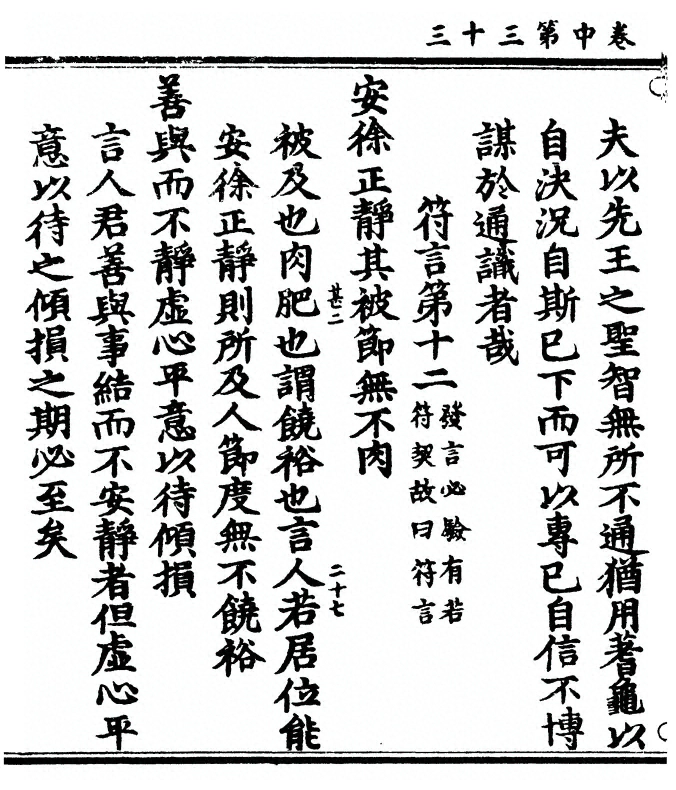 卷中第三十三
夫以先王之聖智無所不通猶用蓍龜以
自決況自斯已下而可以專已自信不博
謀於通識者哉
符言第十二
發言必驗有若
符契故曰符言
安徐正靜其被節無不肉
其二
二十七
被及也肉肥也謂饒裕也言人若居位能
安徐正靜則所及人節度無不饒裕
善與而不靜虛心平意以待傾損
言人君善與事結而不安靜者但虛心平
意以待之傾損之期必至矣